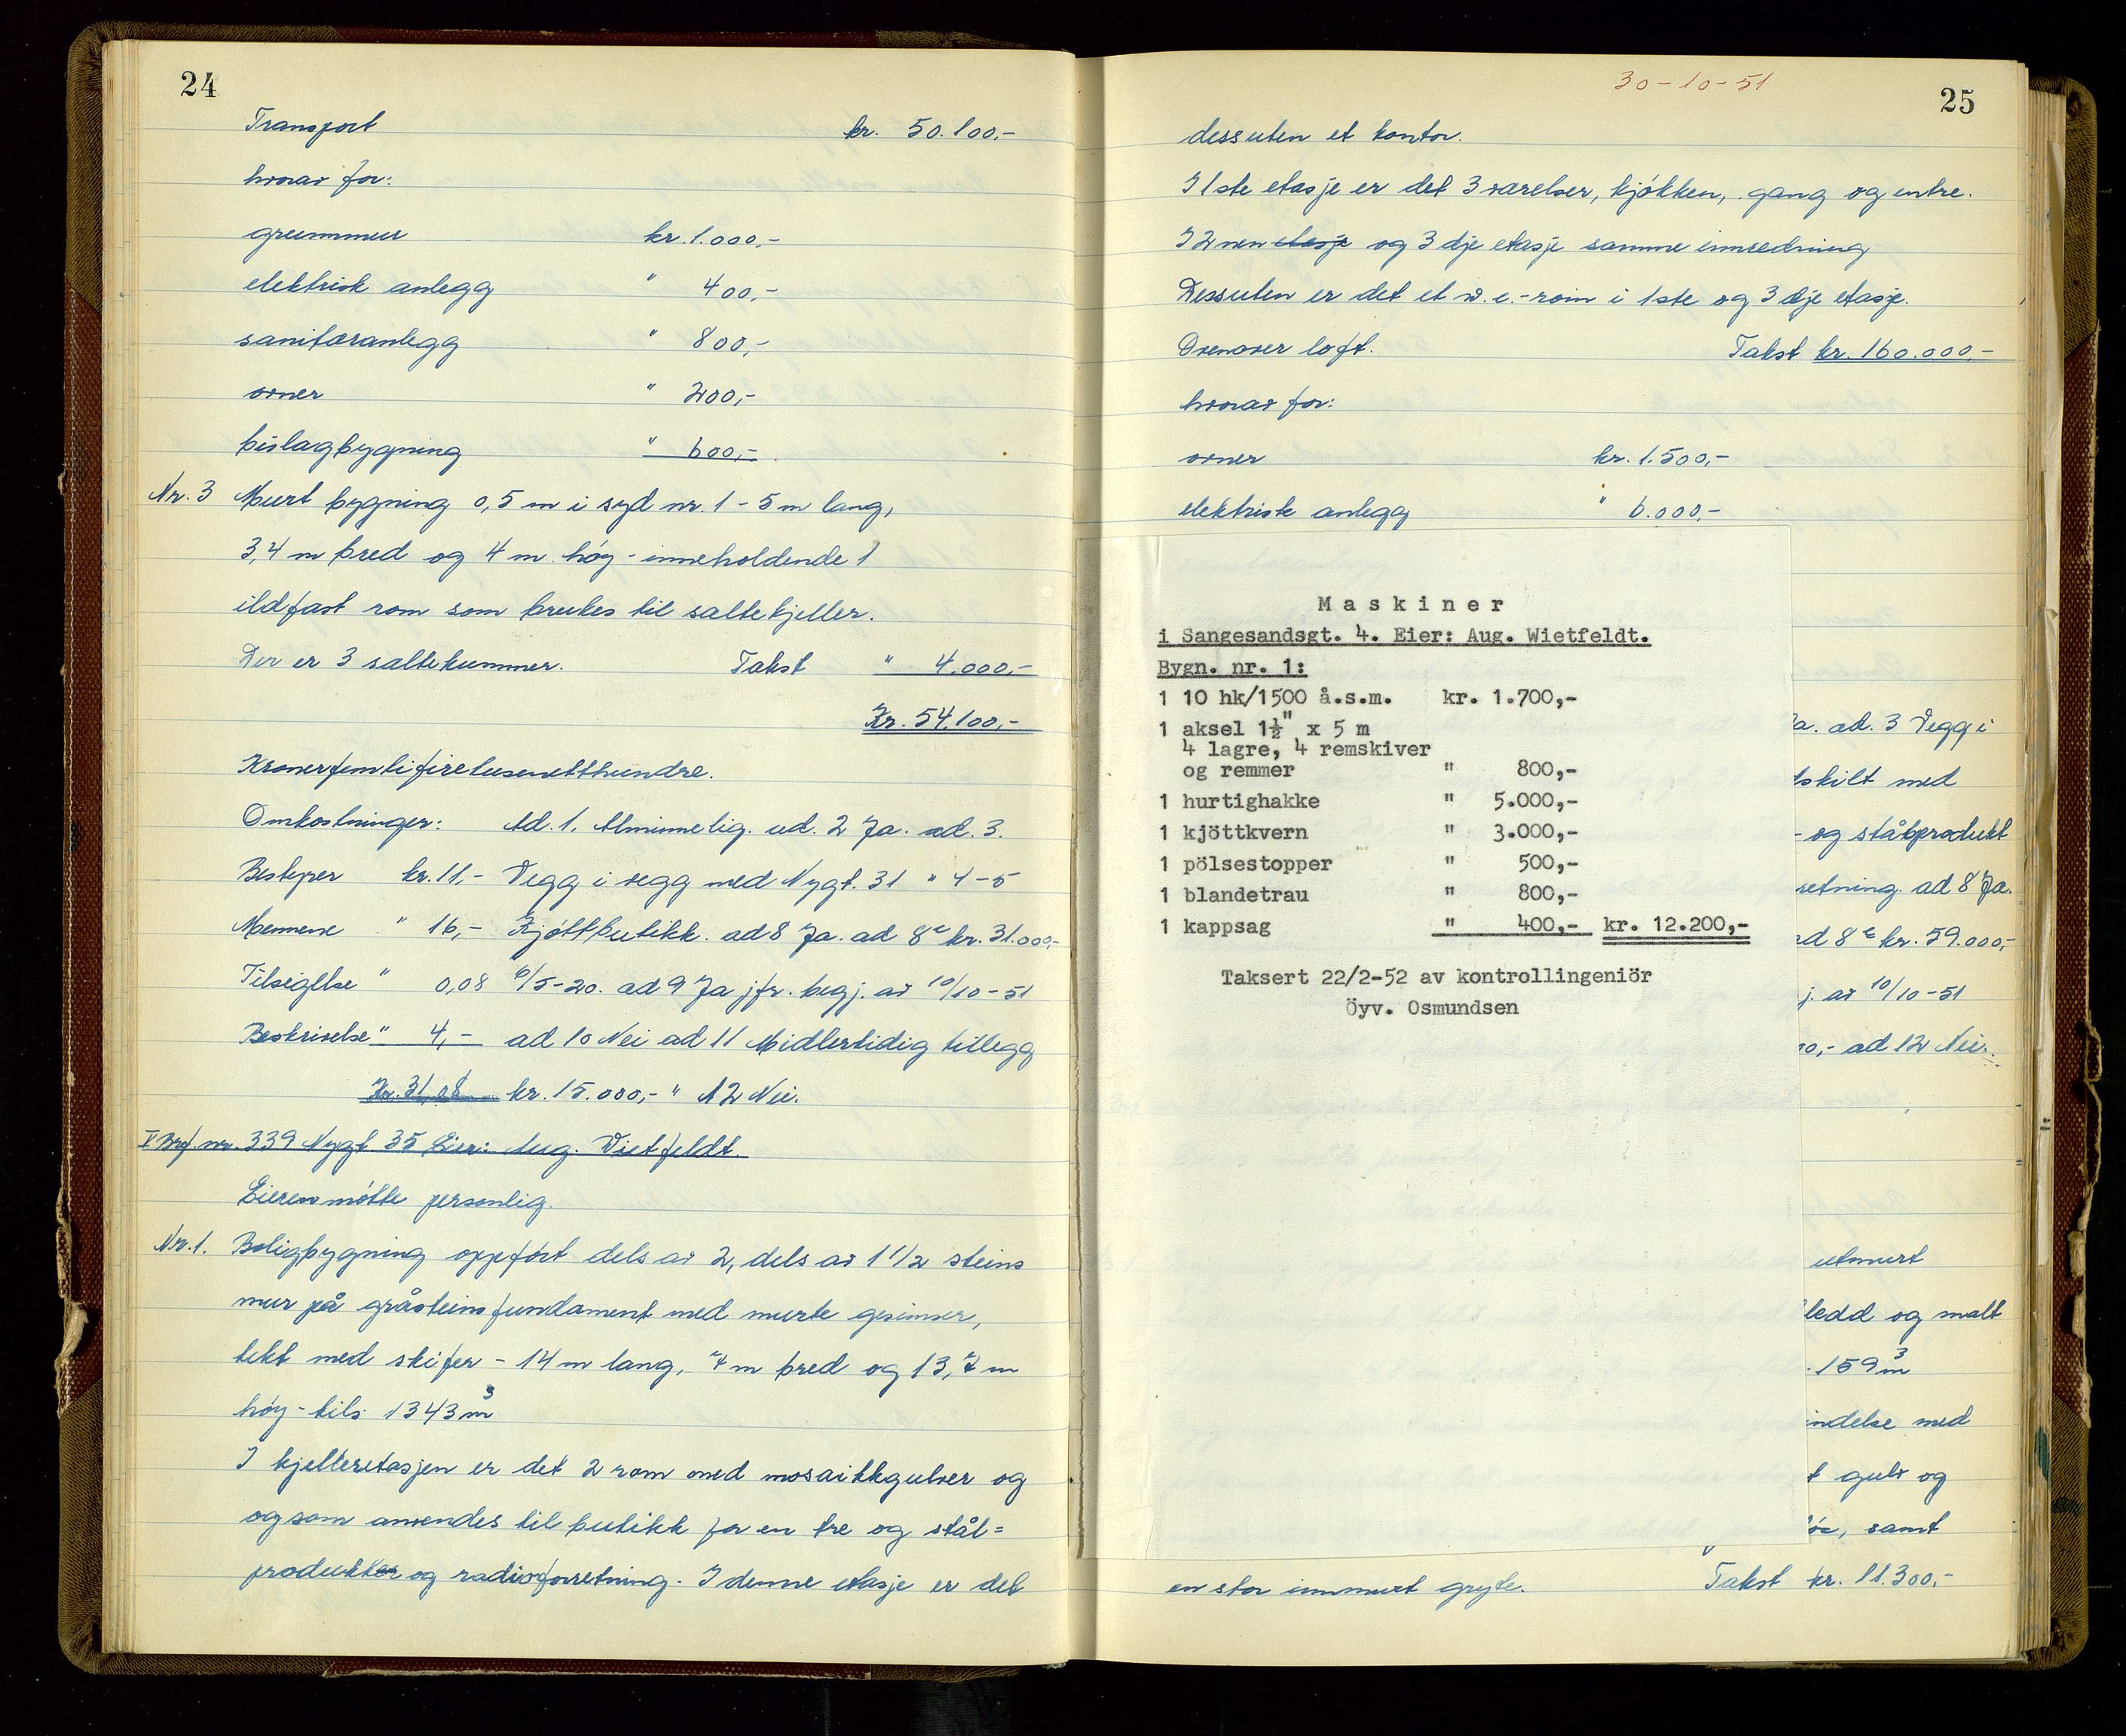 24
Transport kr. 50.100,-
hvorav for:
grunnmur kr. 1.000,-
elektrisk anlegg " 400,-
sanitæranlegg " 800,-
ovner " 200,-
bislagbygning " 600,-
Nr. 3 Murt bygning 0,5 m i syd nr. 1 - 5 m lang,
3,4 m bred og 4 m høy - inneholdende 1
ildfast rom som brukes til saltekjeller.
Der er 3 saltekummer. Takst " 4.000,-
Kr. 54.100,-
Kronerfemtifiretusenetthundre.
Omkostninger: Ad. 1. Alminnelig. ad. 2 Ja. ad. 3.
Bestyrer kr. 11,- Vegg i vegg med Nygt. 31 " 4-5
Mennene " 16,- Kjøttbutikk. ad 8 Ja. ad 8c kr. 31.000,-
Tilsigelse " 0,08 6/5-20. ad 9 Ja jfr. begj. av 10/10-51
Beskrivelse " 4,- ad 10 Nei ad 11 Midlertidig tillegg
Kr. 31,08 kr. 15.000,- " 12 Nei.
V Brf. nr. 339 Nygt 35 Eier: Aug. Wietfeldt.
Eieren møtte personlig.
Nr. 1. Boligbygning oppført dels av 2, dels av 1 1/2 steins
mur på gråsteinsfundament med murte gesimser,
tekt med skifer - 14 m lang, 7 m bred og 13,7 m
høy - tils. 1343 m3
I kjelleretasjen er det 2 rom med mosaikkgulver og
og som anvendes til butikk for en tre og stål=
produkter og radioforretning. I denne etasje er det
30-10-51
25
dessuten et kontor.
I 1ste etasje er det 3 værelser, kjøkken, gang og entre.
I 2nen etasje og 3dje etasje samme innredning
Dessuten er det et w.c.-rom i 1ste og 3dje etasje.
Ovenover loft. Takst kr. 160.000,-
hvorav for:
ovner kr. 1.500,-
elektrisk anlegg " 6.000,-
Maskiner
i Sangesandsgt. 4. Eier: Aug. Wietfeldt.
Bygn. nr. 1:
1 10 hk/1500 å.s.m. kr. 1.700,-
1 aksel 1½" x 5 m
4 lagre, 4 remskiver
og remmer " 800,-
1 hurtighakke " 5.000,-
1 kjöttkvern " 3.000,-
1 pölsestopper " 500,-
1 blandetrau " 800,-
1 kappsag " 400,- kr. 12.200,-
Taksert 22/2-52 av kontrollingeniör
Öyv. Osmundsen
Ja. ad. 3 Vegg i
dskilt med
- og stålprodukt
retning. ad 8 Ja.
ad 8c kr. 59.000,-
j. av 10/10-51
00,- ad 12 Nei.
utmurt
ledd og malt
. 159 m3
indelse med
t gulv og
, samt
en stor innmurt gryte. Takst kr. 11.300,-